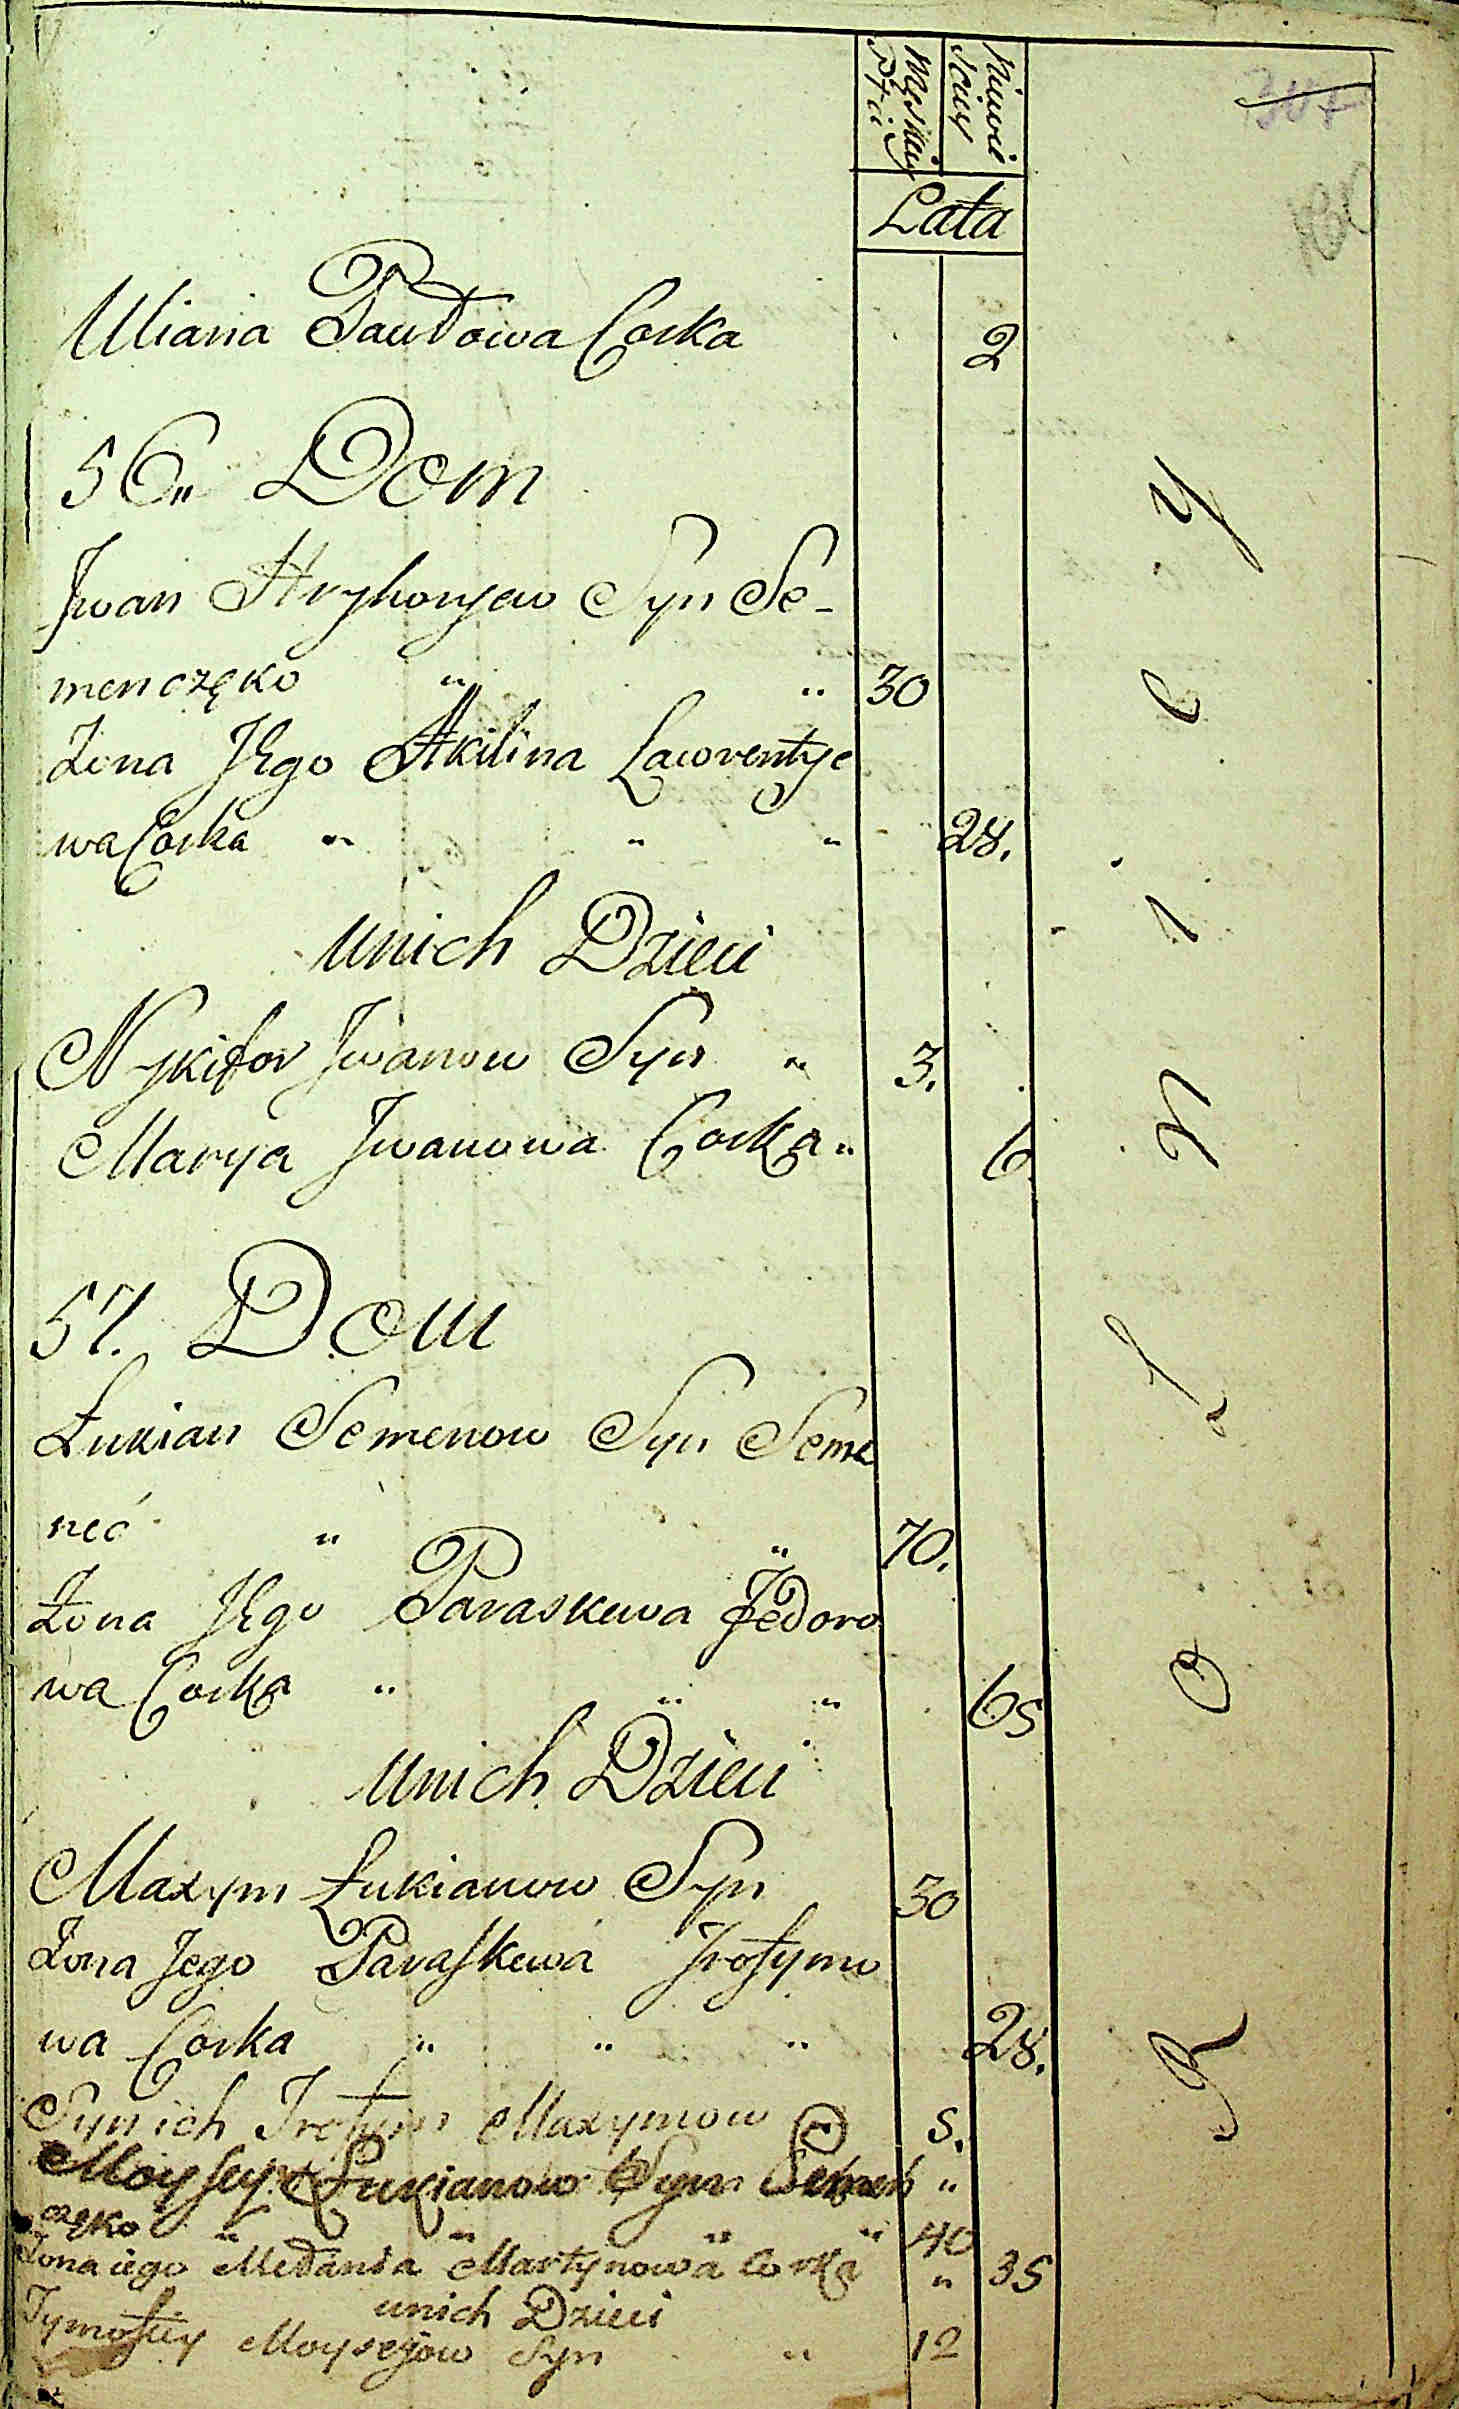 Męskiey Płci
Niewieściey
307
Lata
Uliana Pawłowa Corka 2
56„ Dom
Jwan Hryhoryew Syn Se-
menczęko „ „ 30
Żona JEgo Akilina Lawrentye
wa Corka „ „ „ 28.
unich Dzieci
Nykifor Jwanow Syn „ 3.
Marya Jwanowa Corka „ 6
57. Dom
Łukian Semenow Syn Seme
neć „ „ 70.
Żona JEgo Paraskewa Fedoro
wa Corka „ „ „ 65
unich Dzieci
Maxym Łukianow Syn 30
Żona Jego Paraskewa Trofymo
wa Corka „ „ „ 28.
Syn ich Trofym Maxymow 5.
Moysey Łukianow Syn Semen „
częko „ „ „ „ 40
Żona iego Mełania Martynowa Corka „ 35
unich Dzieci
Tymofiey Moysejow Syn „ 12
R o l n i c y